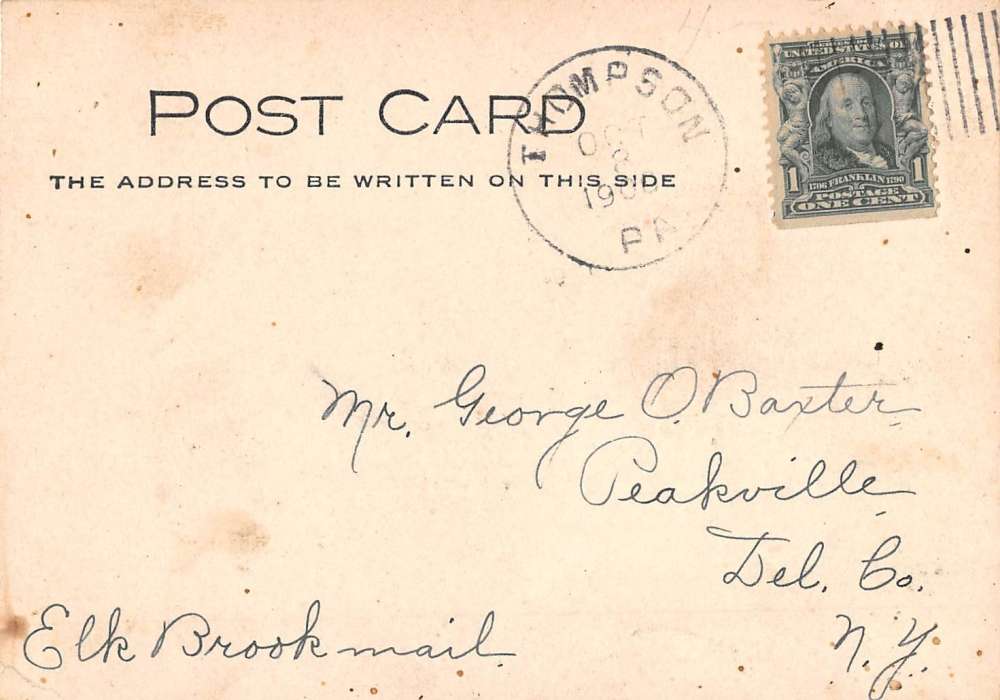 POST CARD
THE ADDRESS TO BE WRITTEN ON THIS SIDE
THOMPSON
OCT
PA
UNITED STATES OF
AMERICA
1
1706 FRANKLIN 1790
POSTAGE
ONE CENT
Mr. George O. Baxter
Peakville
Del. Co.
N.Y.
Elk Brook mail